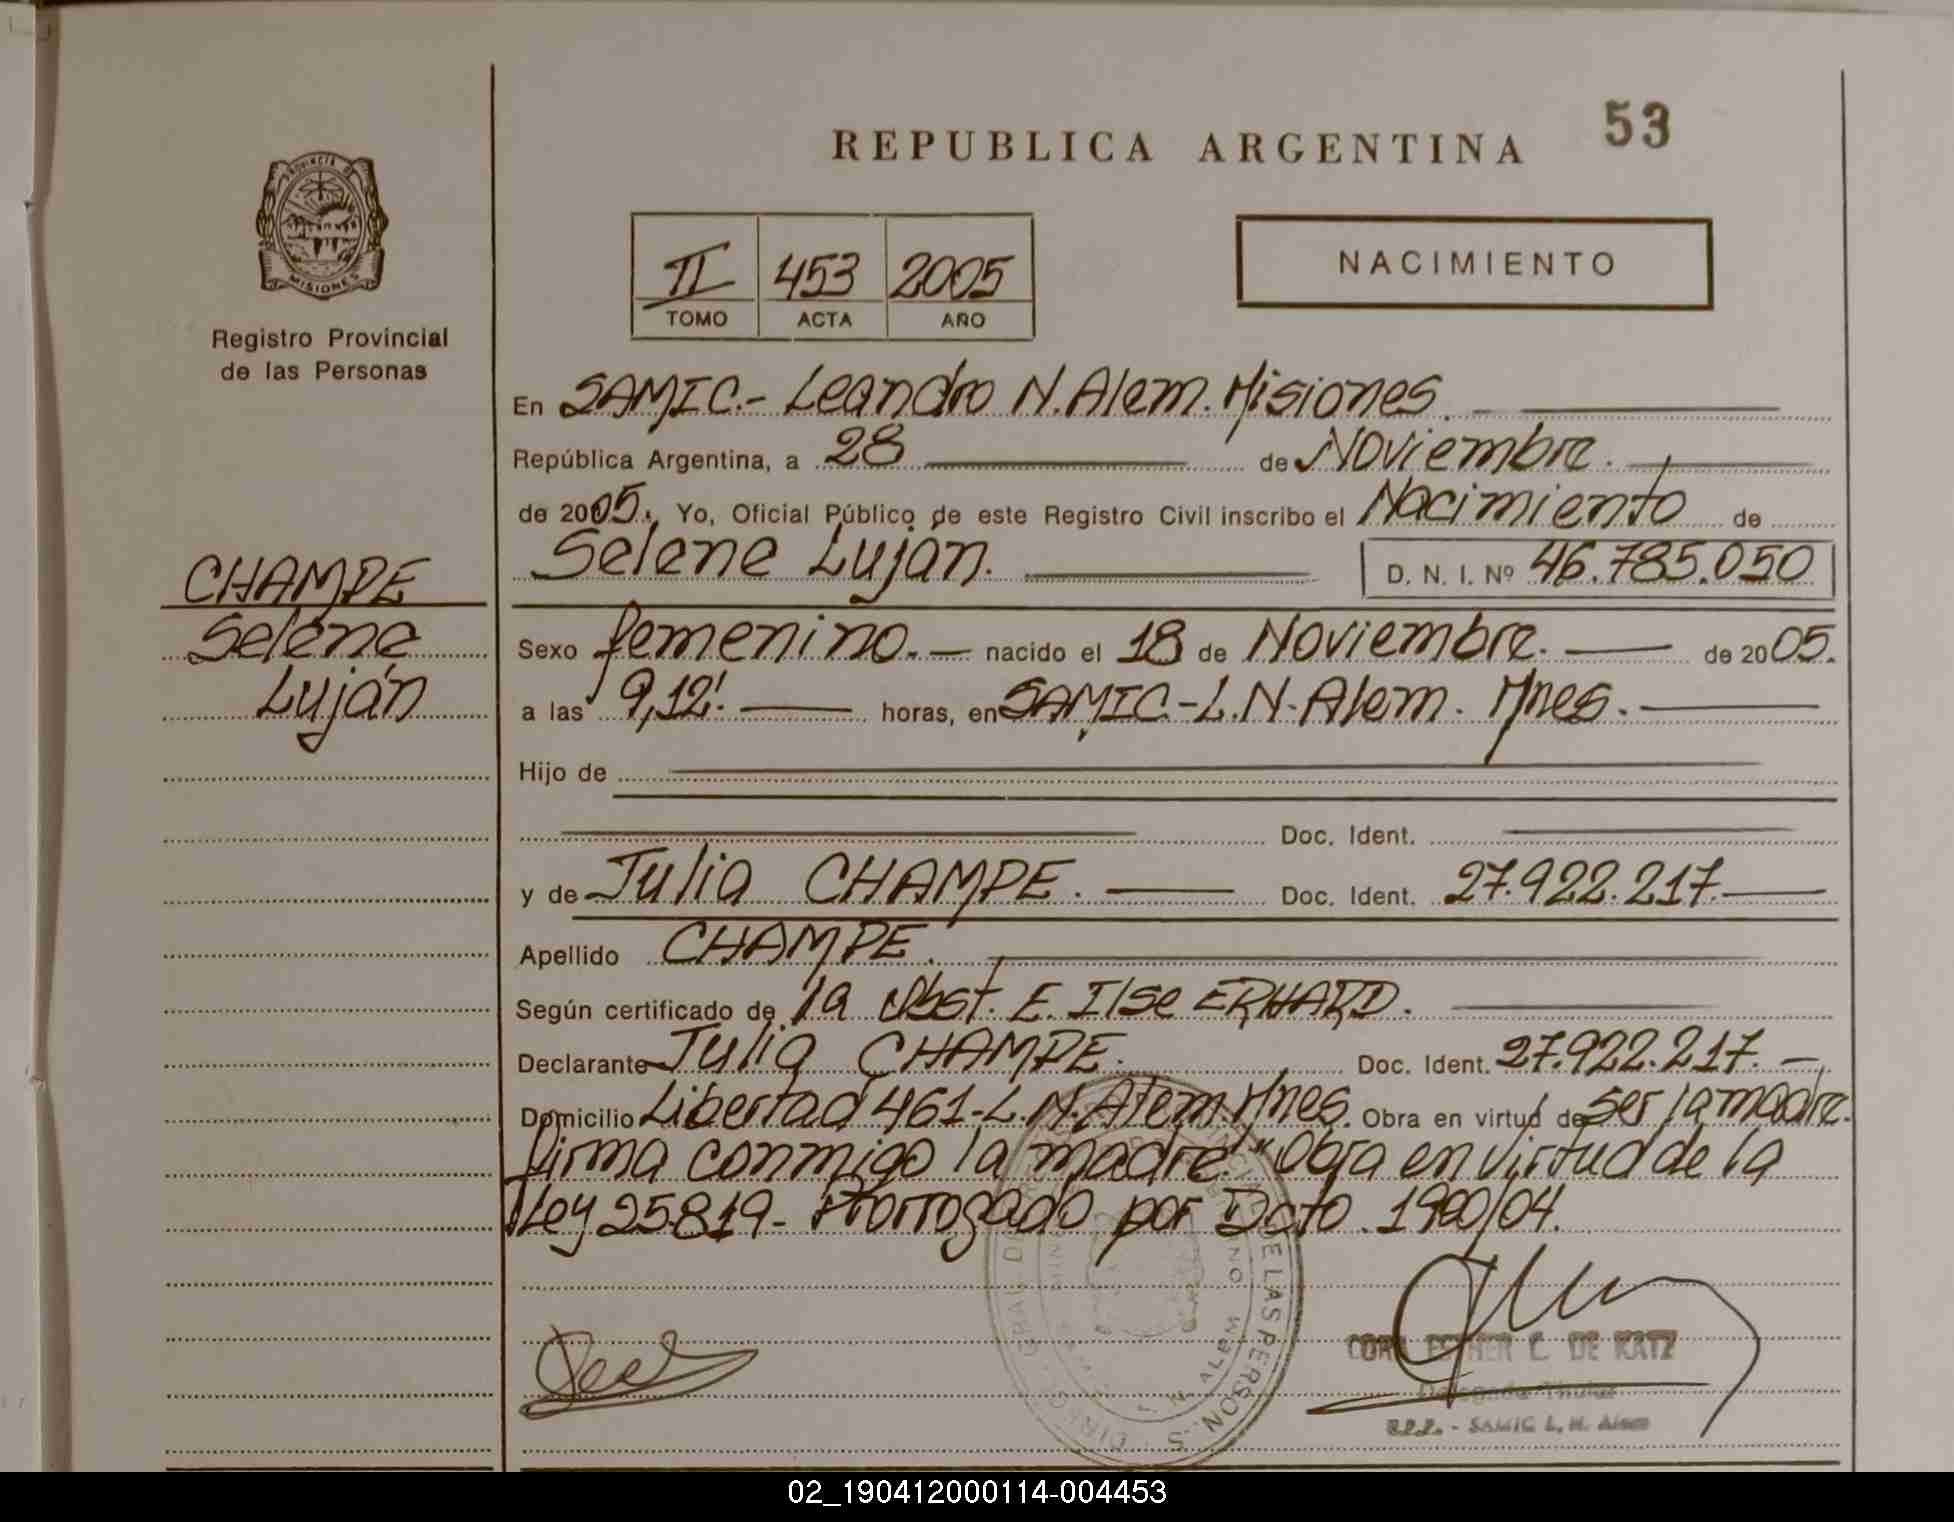 53
REPUBLICA ARGENTINA
PROVINCIA DE
MISIONES
Registro Provincial
de las Personas
II 453 2005
TOMO ACTA AÑO
NACIMIENTO
En SAMIC.- Leandro N. Alem. Misiones.
República Argentina, a 28 de Noviembre.
de 2005. Yo, Oficial Público de este Registro Civil inscribo el Nacimiento de
Selene Luján. D. N. I. Nº 46.785.050
CHAMPE
Selene
Luján
Sexo femenino.- nacido el 18 de Noviembre. de 2005.
a las 9,12'. horas, en SAMIC.-L.N-Alem. Mnes.
Hijo de
Doc. Ident.
y de Julia CHAMPE. Doc. Ident. 27.922.217.
Apellido CHAMPE.
Según certificado de la Obst. E. Ilse ERHARD.
Declarante Julia CHAMPE. Doc. Ident. 27.922.217.-
Domicilio Libertad 461-L.N.Alem.Mnes. Obra en virtud de ser la madre.
firma conmigo la madre." Obra en virtud de la
Ley 25.819- Prorrogado por Dcto. 1900/04.
DE LAS PERSONAS
N. ALEM
ESTHER C. DE KATZ
Delegada Titular
SAMIC L. N. Alem
02_190412000114-004453